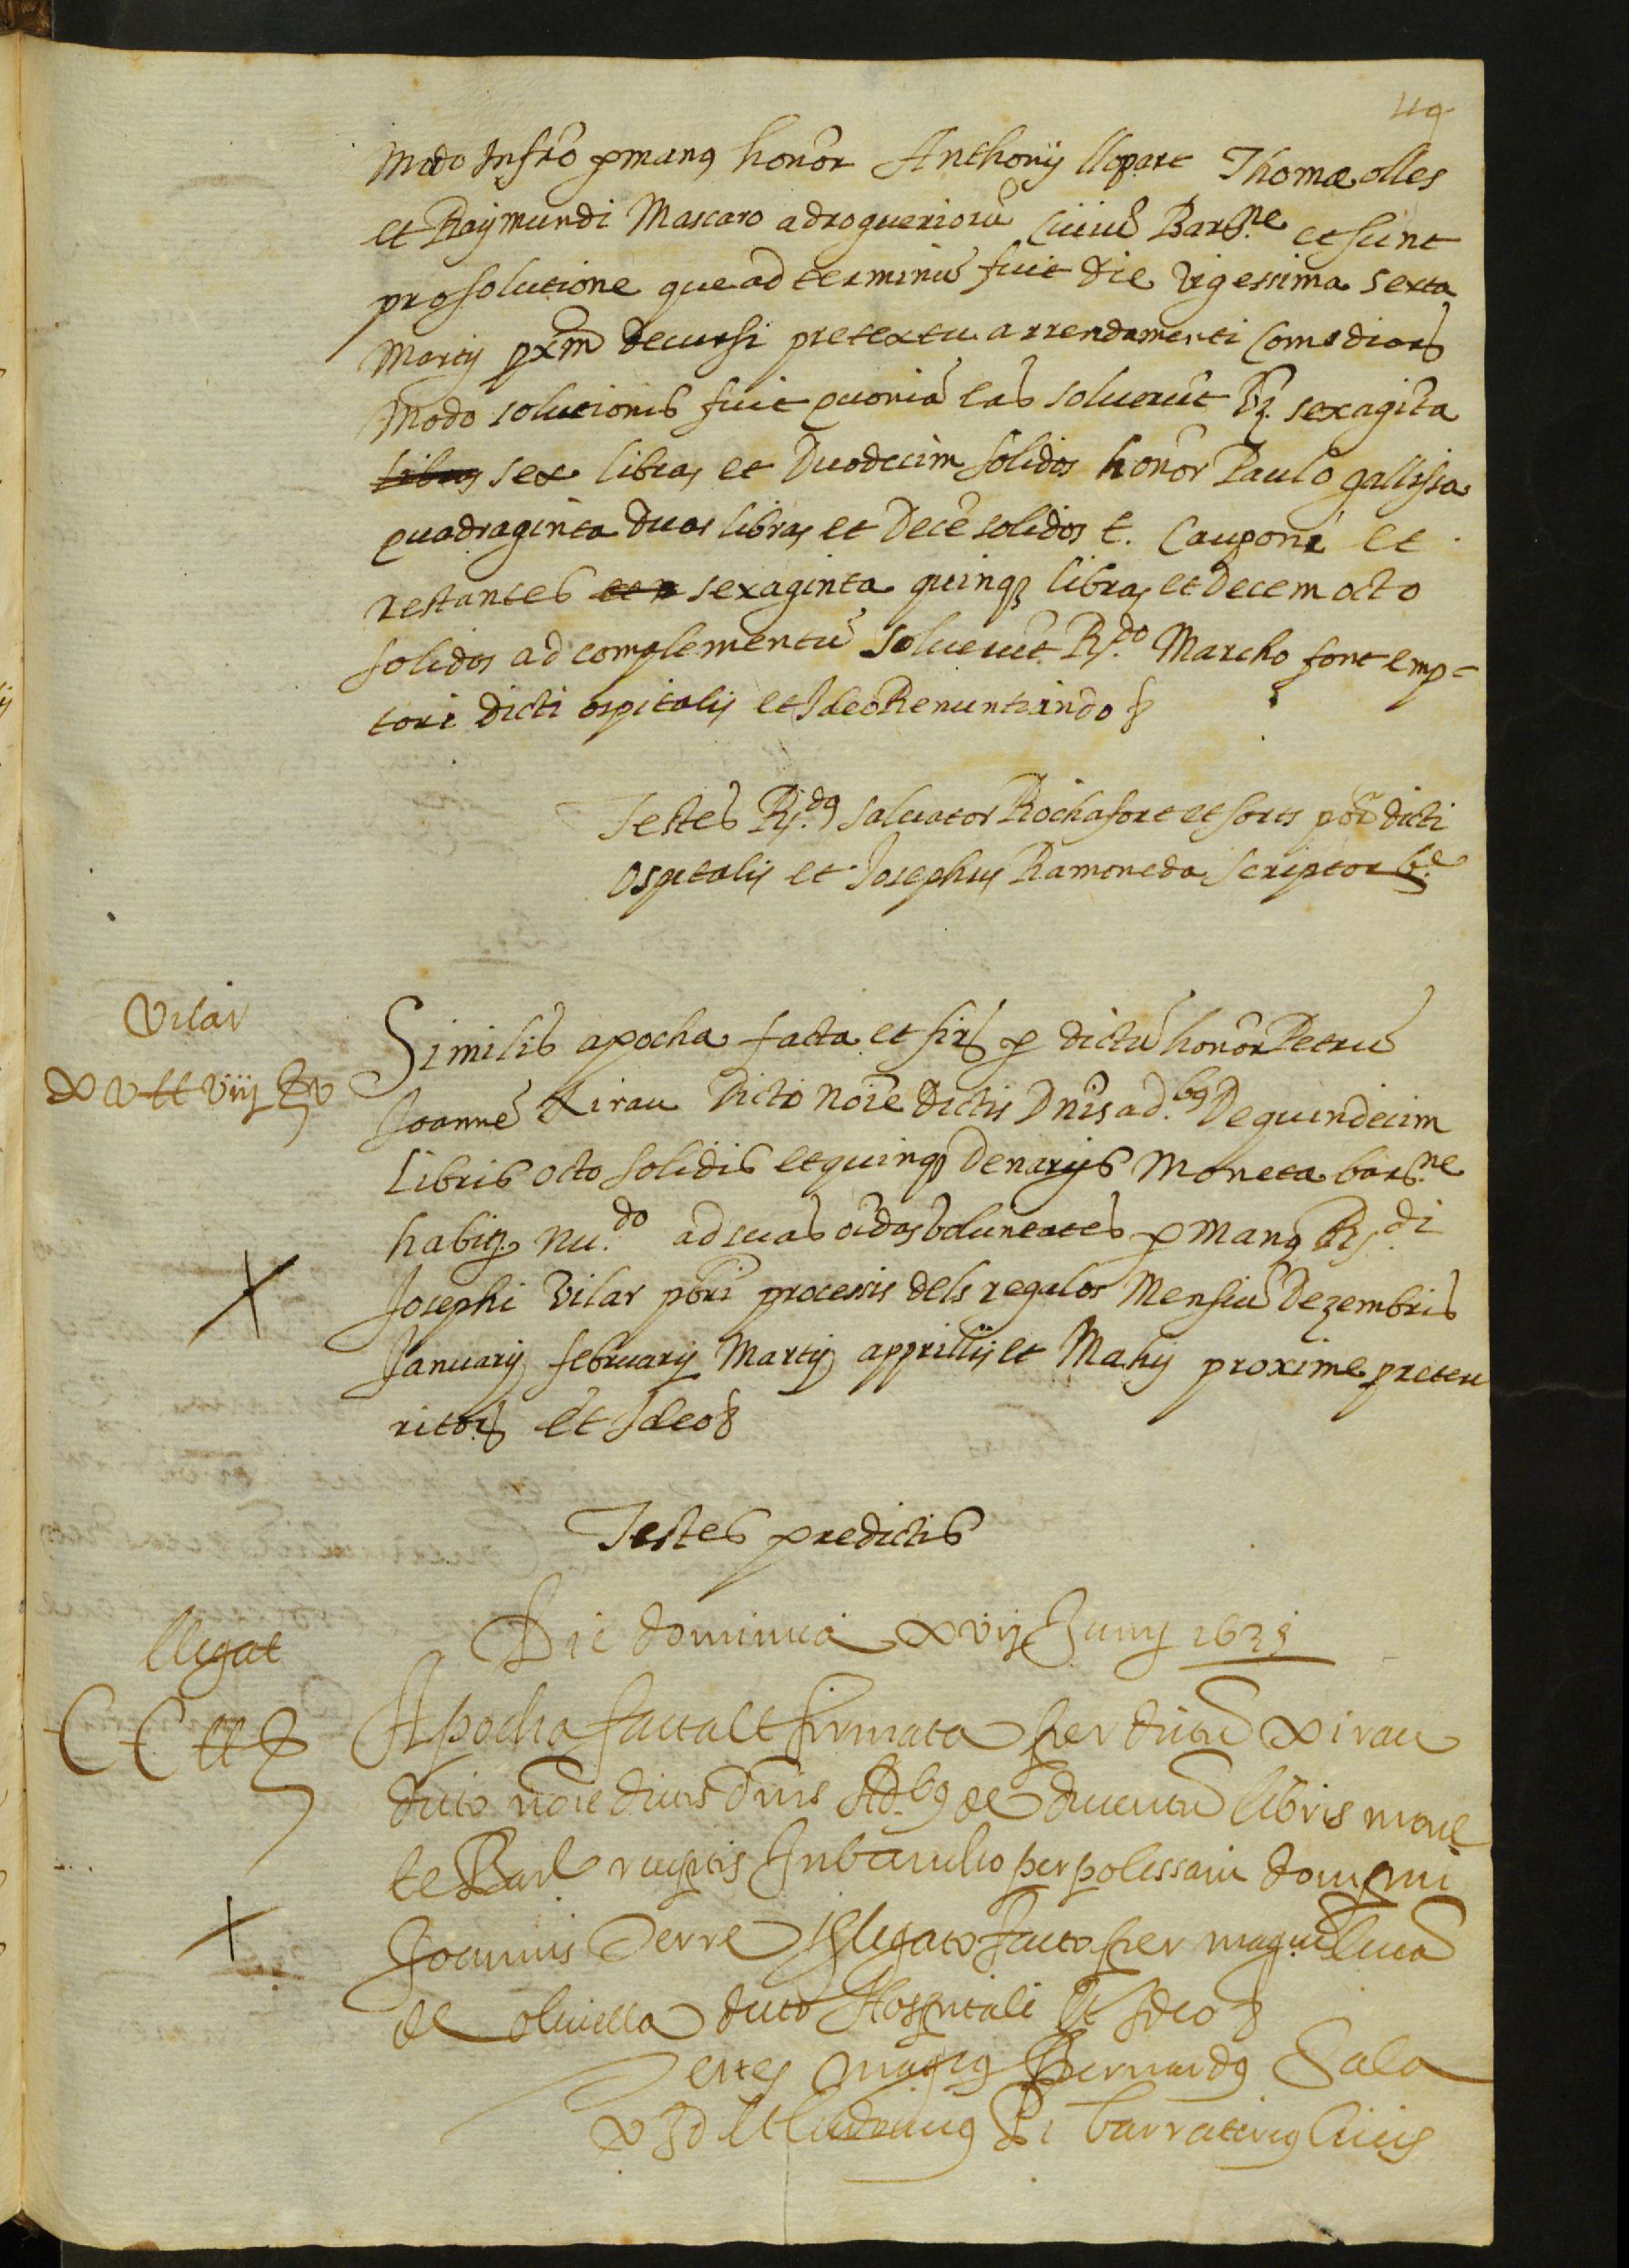 119
Modo Infrõ p manꝯ honor Anthonij llopart Thomæ olles
et Raymundi Mascaro adrogueriorũ Ciuiũ Barsne et sunt
pro solutione que ad terminũ fuit die vigessima sexta
Martij pxm̃ decursi pretextu arrendamenti Comediarũ
Modo solutionis fuit quoniã eas soluerũt sexagĩta
libras sex libras et Duodecim solidos honor Paulo gallissa
quadraginta duas libras et Decẽ solidos t. Cauponi et
restantes et sexaginta quinqꝫ libras et Decem octo
solidos ad complementũ soluerũt Rdo Marcho font emp=
tori dicti ospitalis et Ideo Renuntiando &
Testes Rdꝯ Saluator Rochafort et sorts pbr̃ dicti
Ospitalis et Josephus Ramoneda scriptor be
Vilar
xv ll viij s v
Similis apocha facta et fir p dictũ honor Petrũ
Joannẽ Xirau Dicto noĩe dictis Dnĩs ad.bꝯ De quindecim
libris octo solidis et quinqꝫ Denarijs Moneta barsne
habitꝫ nu.do ad suas oĩdas voluntates p manꝯ Rdi
Josephi Vilar pbrĩ processis dels regalos Mensiũ Dezembris
Januarij februarij Martij apprillij et Mahij proxime preteri
ritorũ et Ideo &
Testes predictis
llegat
CC ll s
Die dominica xvij Junij 1635
Apocha facta et firmata per dictũ Xirau
dicto noĩe dictis Dnĩs Ad.bꝯ de ducentũ libris mone
te Bar receptis In bancho per polissam dompni
Joannis Serre legato facto per magcũ lucã
de oliuella dicto Hospitali Et Ideo &
Testes magcꝯ Bernardꝯ Sala
Pi barratinꝯ Ciuis